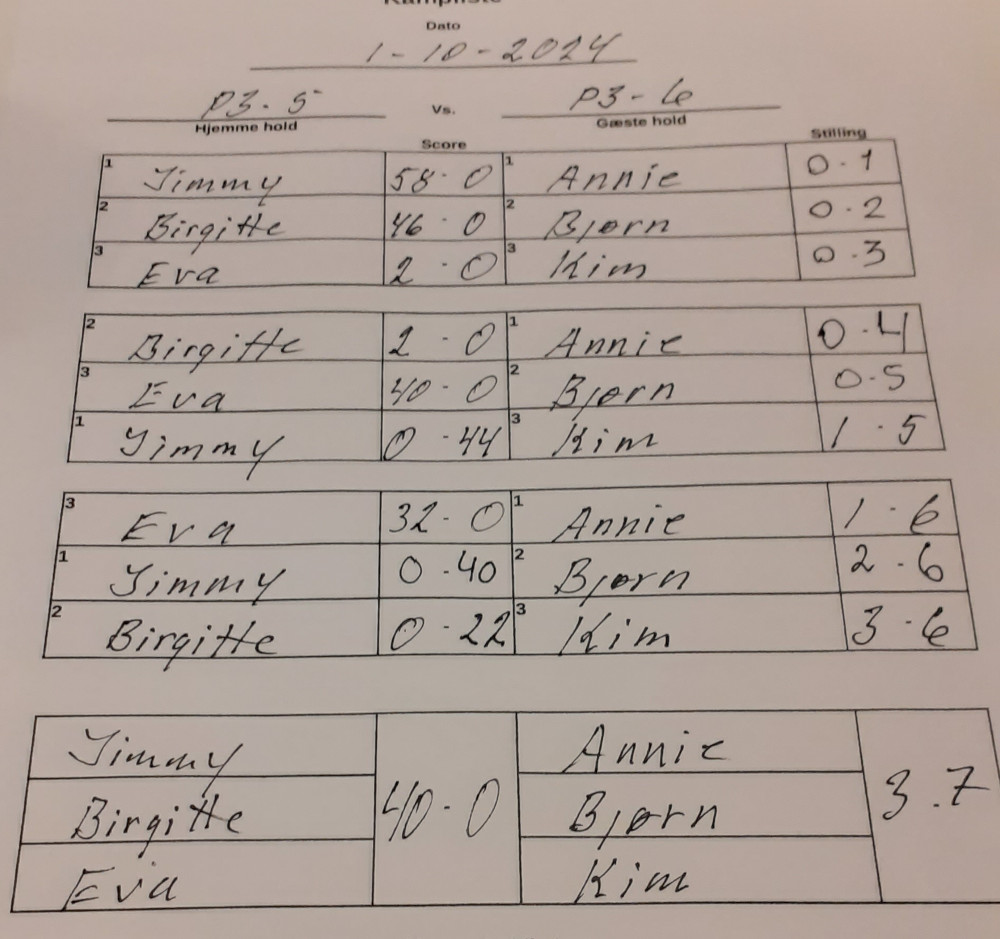 Kampliste
Dato
1-10-2024
P3-5 Vs. P3-6
Hjemme hold Gæste hold
Score Stilling
1 Jimmy 58-0 1 Annie 0-1
2 Birgitte 46-0 2 Bjørn 0-2
3 Eva 2-0 3 Kim 0-3
2 Birgitte 2-0 1 Annie 0-4
3 Eva 40-0 2 Bjørn 0-5
1 Jimmy 0-44 3 Kim 1-5
3 Eva 32-0 1 Annie 1-6
1 Jimmy 0-40 2 Bjørn 2-6
2 Birgitte 0-22 3 Kim 3-6
Jimmy Annie
Birgitte 40-0 Bjørn 3-7
Eva Kim